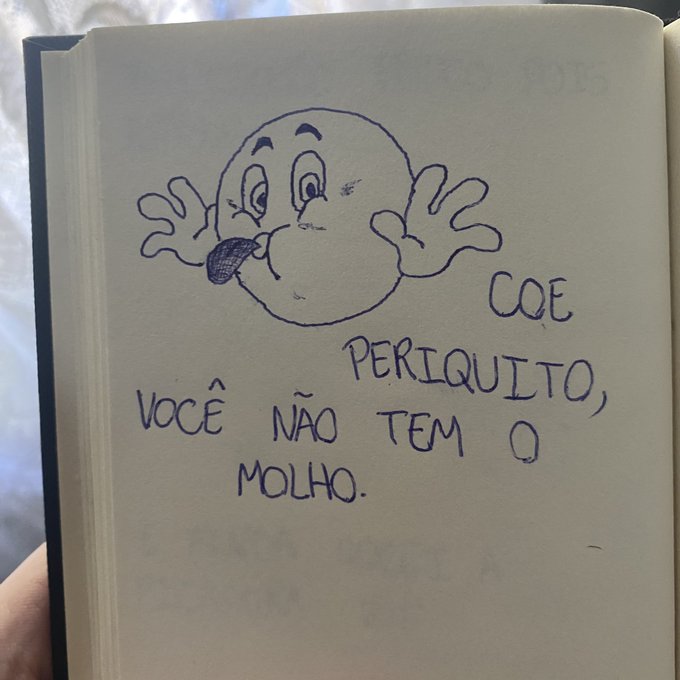 COE
PERIQUITO,
VOCÊ NÃO TEM O
MOLHO.